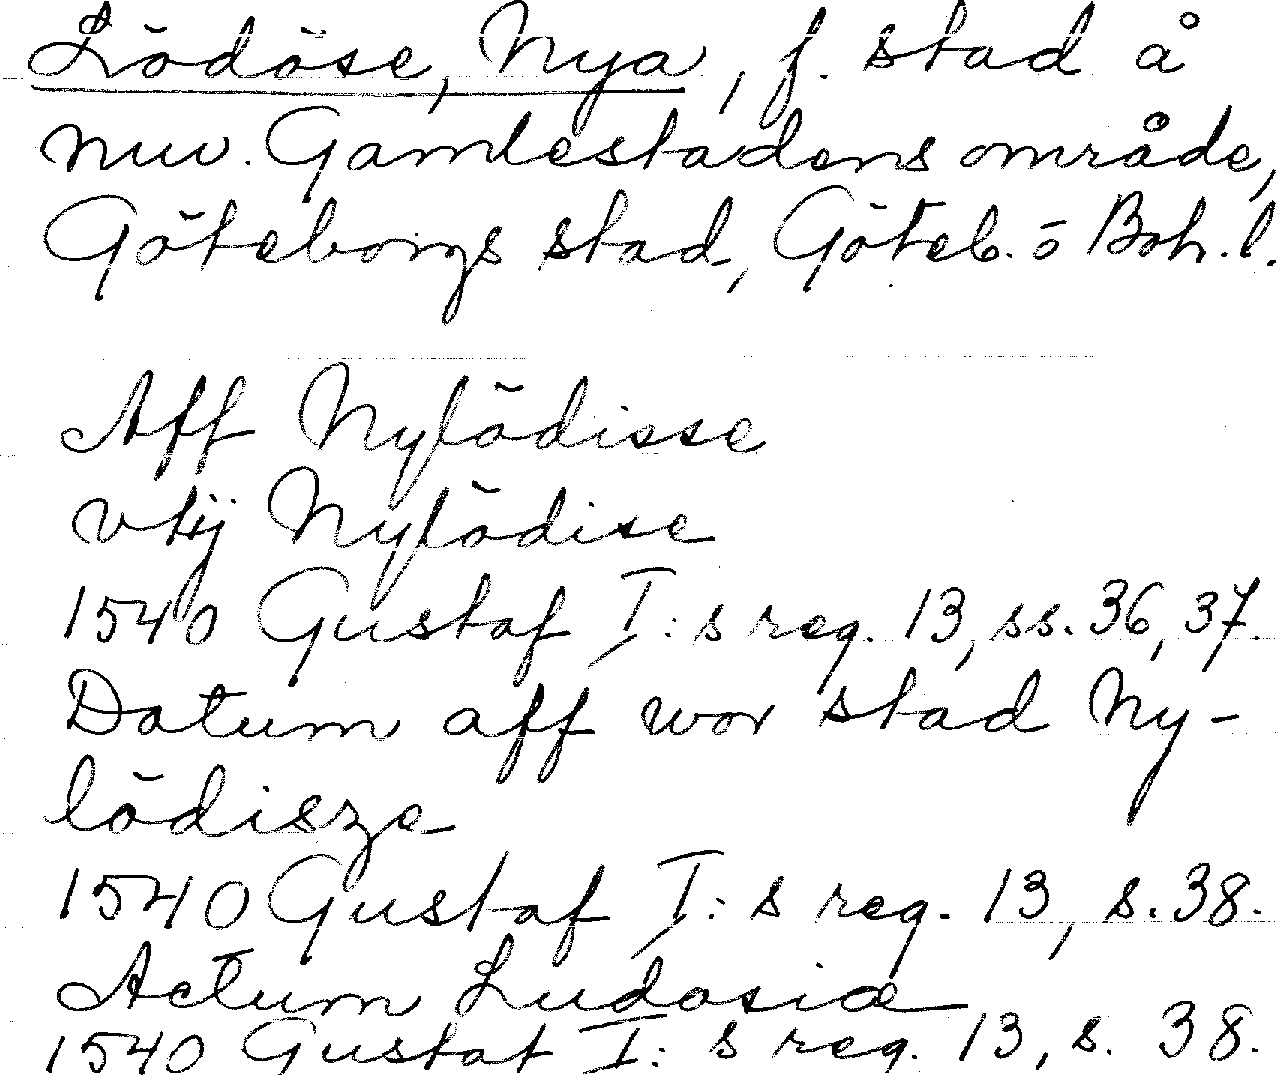 Lödöse, Nya, f. stad å
nuv. Gamlestadens område,
Göteborgs stad, Göteb. o Boh. l.
Aff Nylödisse
vtij Nylödise
1540 Gustaf I:s reg. 13, ss. 36, 37.
Datum aff wor stad Ny-
lödisze
1540 Gustaf I:s reg. 13, s. 38.
Actum Ludosiæ
1540 Gustaf I:s reg. 13, s. 38.